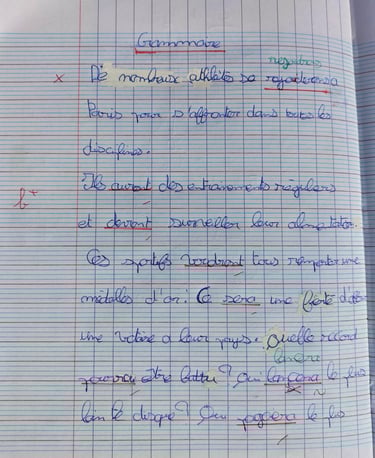 Grammaire
De nombreux athlètes se regarderons à
Paris pour s'affronter dans toutes les
disciplines.
Ils auront des entrainements réguliers
et devront surveiller leur alimentation.
Ces sportifs voudront tous remporter une
médailles d'or. Ce sera une fierté d'
une victoire a leur pays. Quelle record
lancera
pourra être battu? Qui lancera le plus
loin le disque? Qui le plus
b+